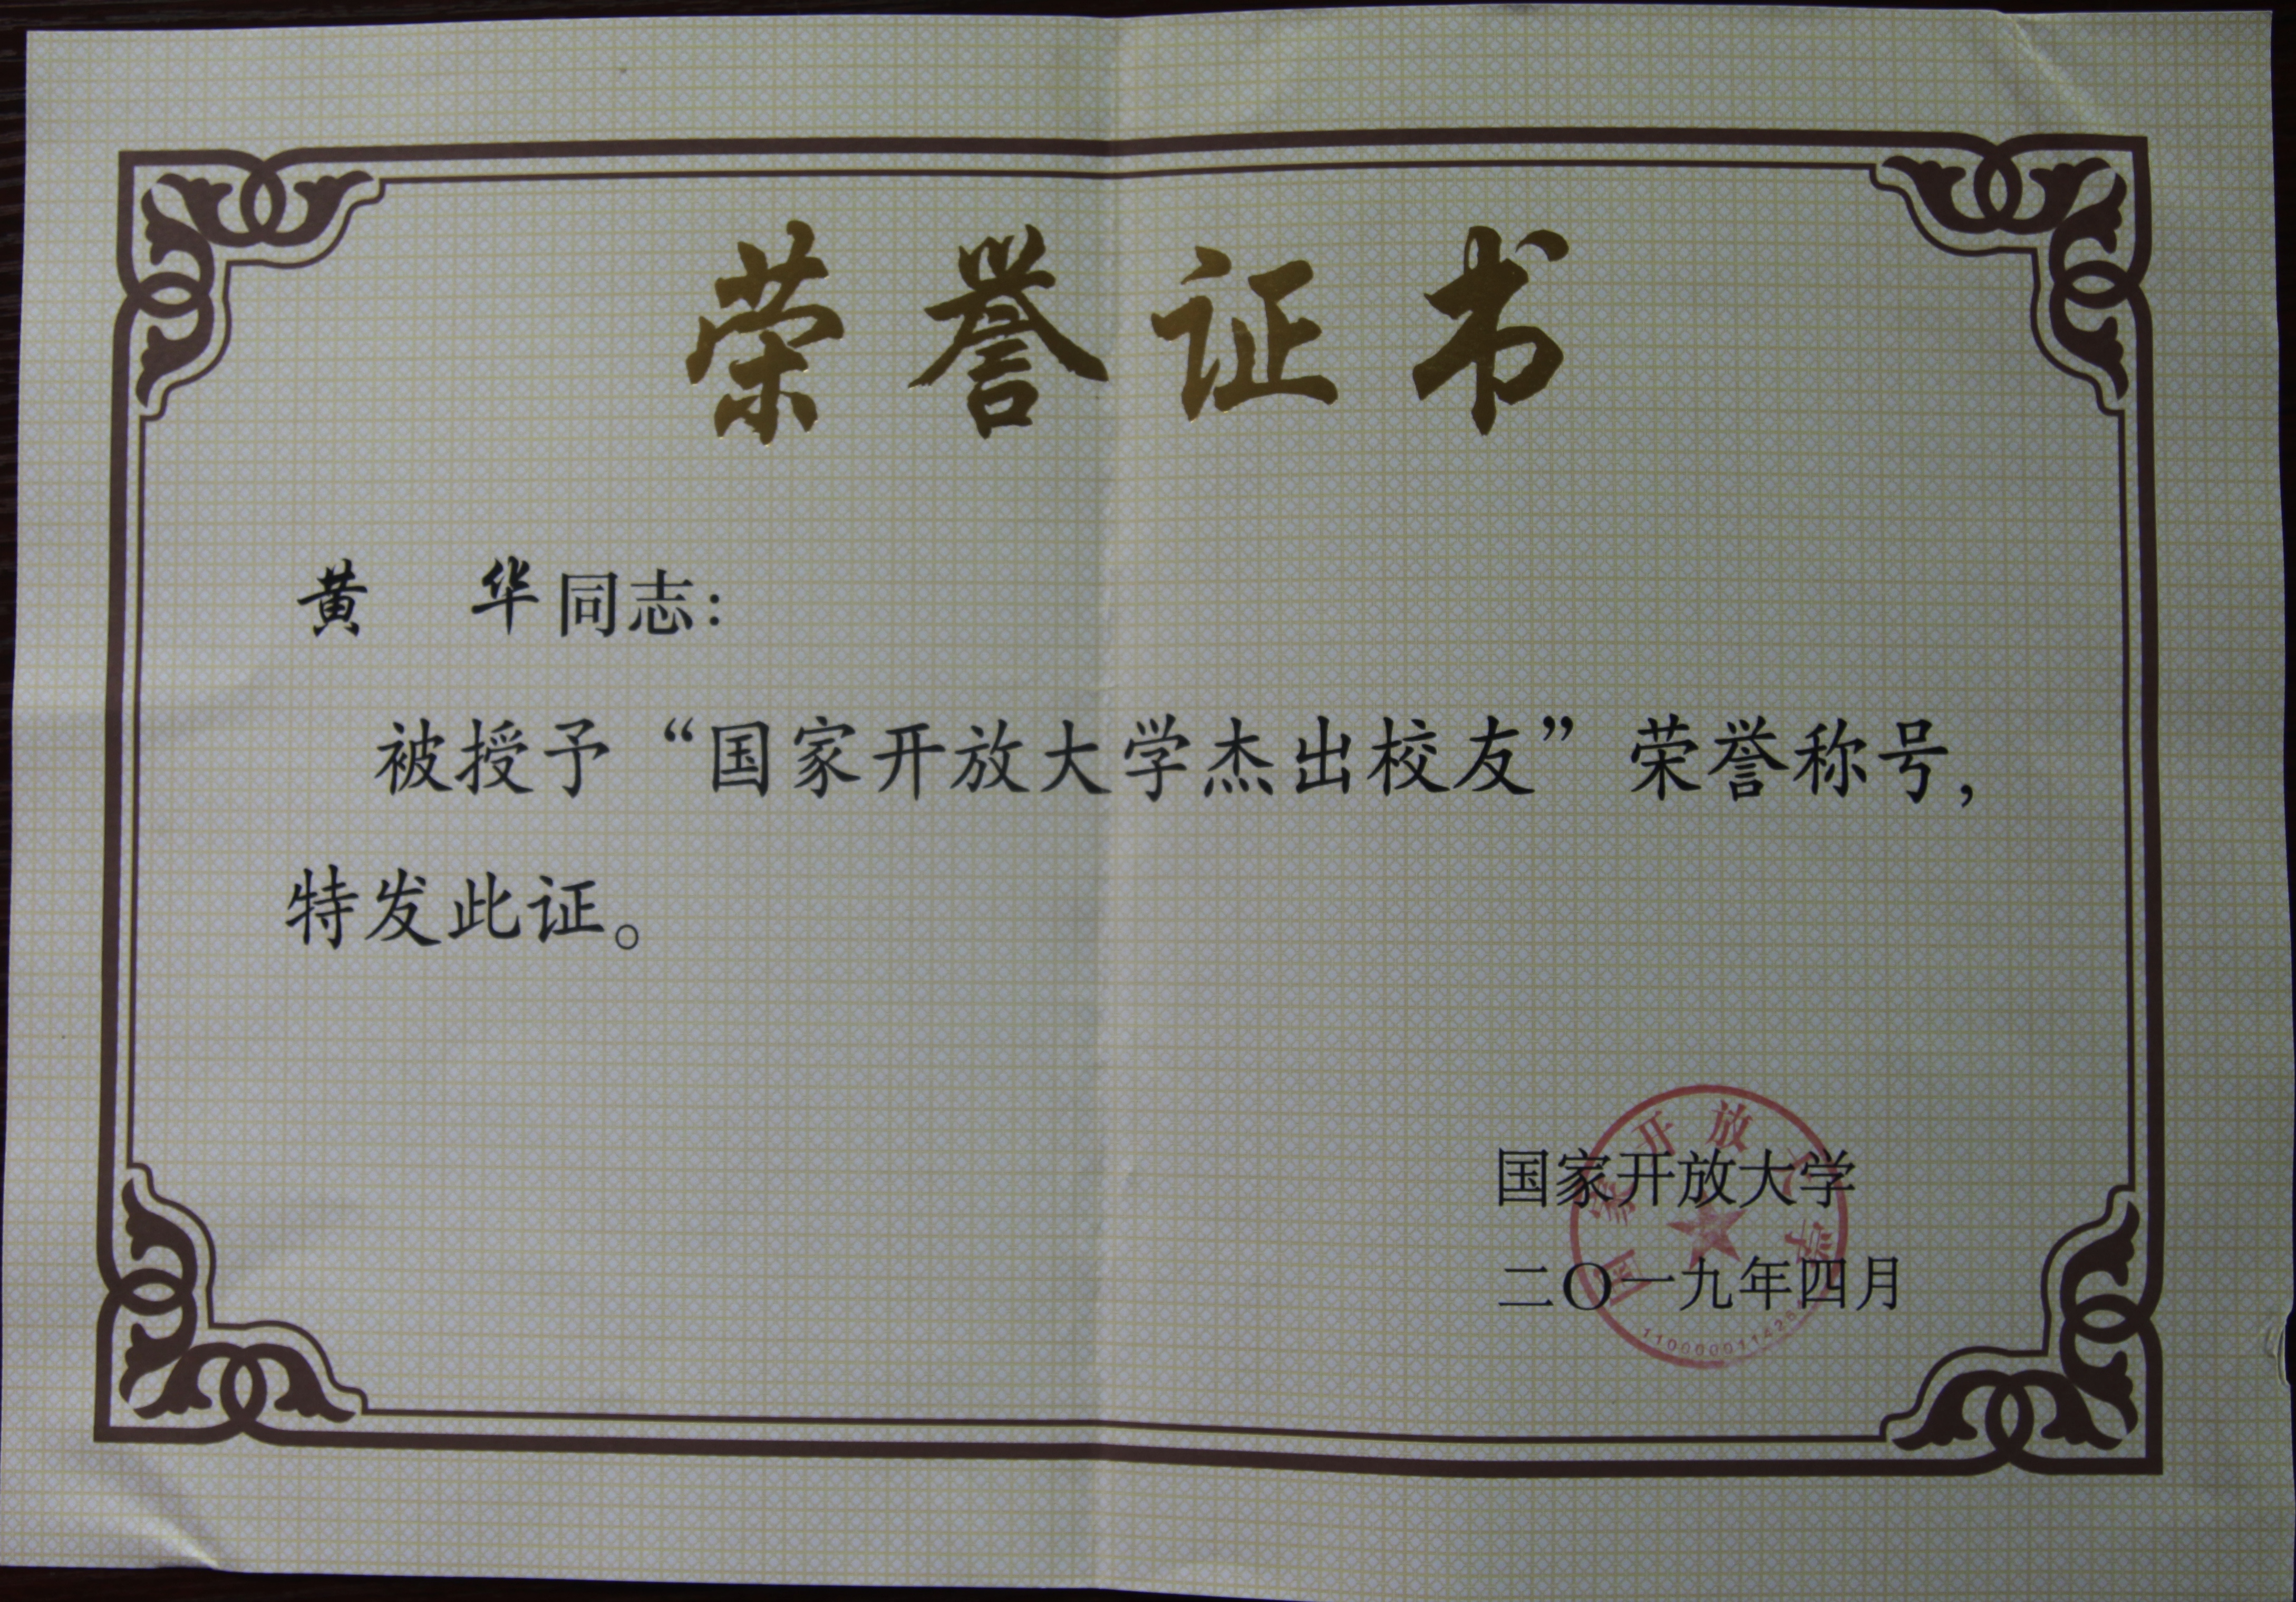 荣誉证书
黄 华同志：
被授予“国家开放大学杰出校友”荣誉称号，
特发此证。
国家开放大学
二〇一九年四月
国家开放大学